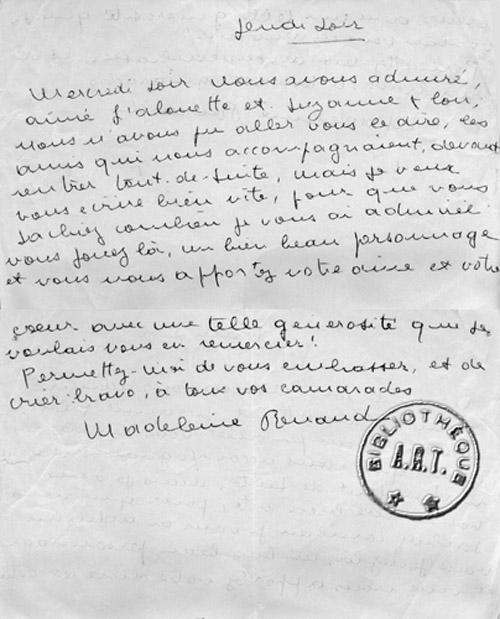 Jeudi soir
Mercredi soir nous avons admiré,
aimé l'alouette et Suzanne Flon,
nous n'avons pu aller vous le dire, les
amis qui nous accompagnaient, devant
rentrer tout-de-suite, mais je veux
vous écrire bien vite, pour que vous
sachiez combien je vous ai admirée
vous jouez là, un bien beau personnage
et vous nous apportez votre âme et votre
cœur avec une telle générosité que je
voulais vous en remercier!
Permettez-moi de vous embrasser, et de
crier bravo, à tous vos camarades
Madeleine Renaud
BIBLIOTHÈQUE
A.R.T.